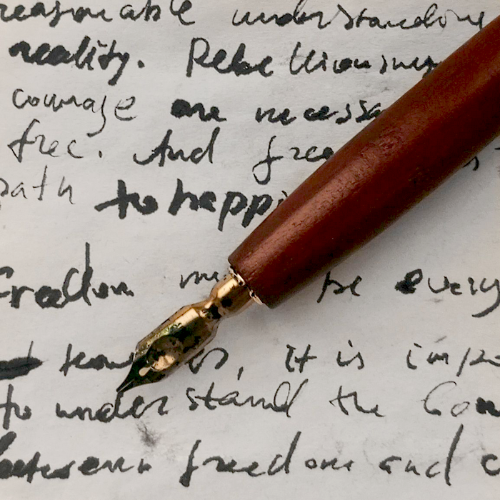 reasonable understanding
reality. Rebelliousness
courage are necessa
free. And free
path to happi
Freedom be every
it is imp
to understand the Con
between freedom and c